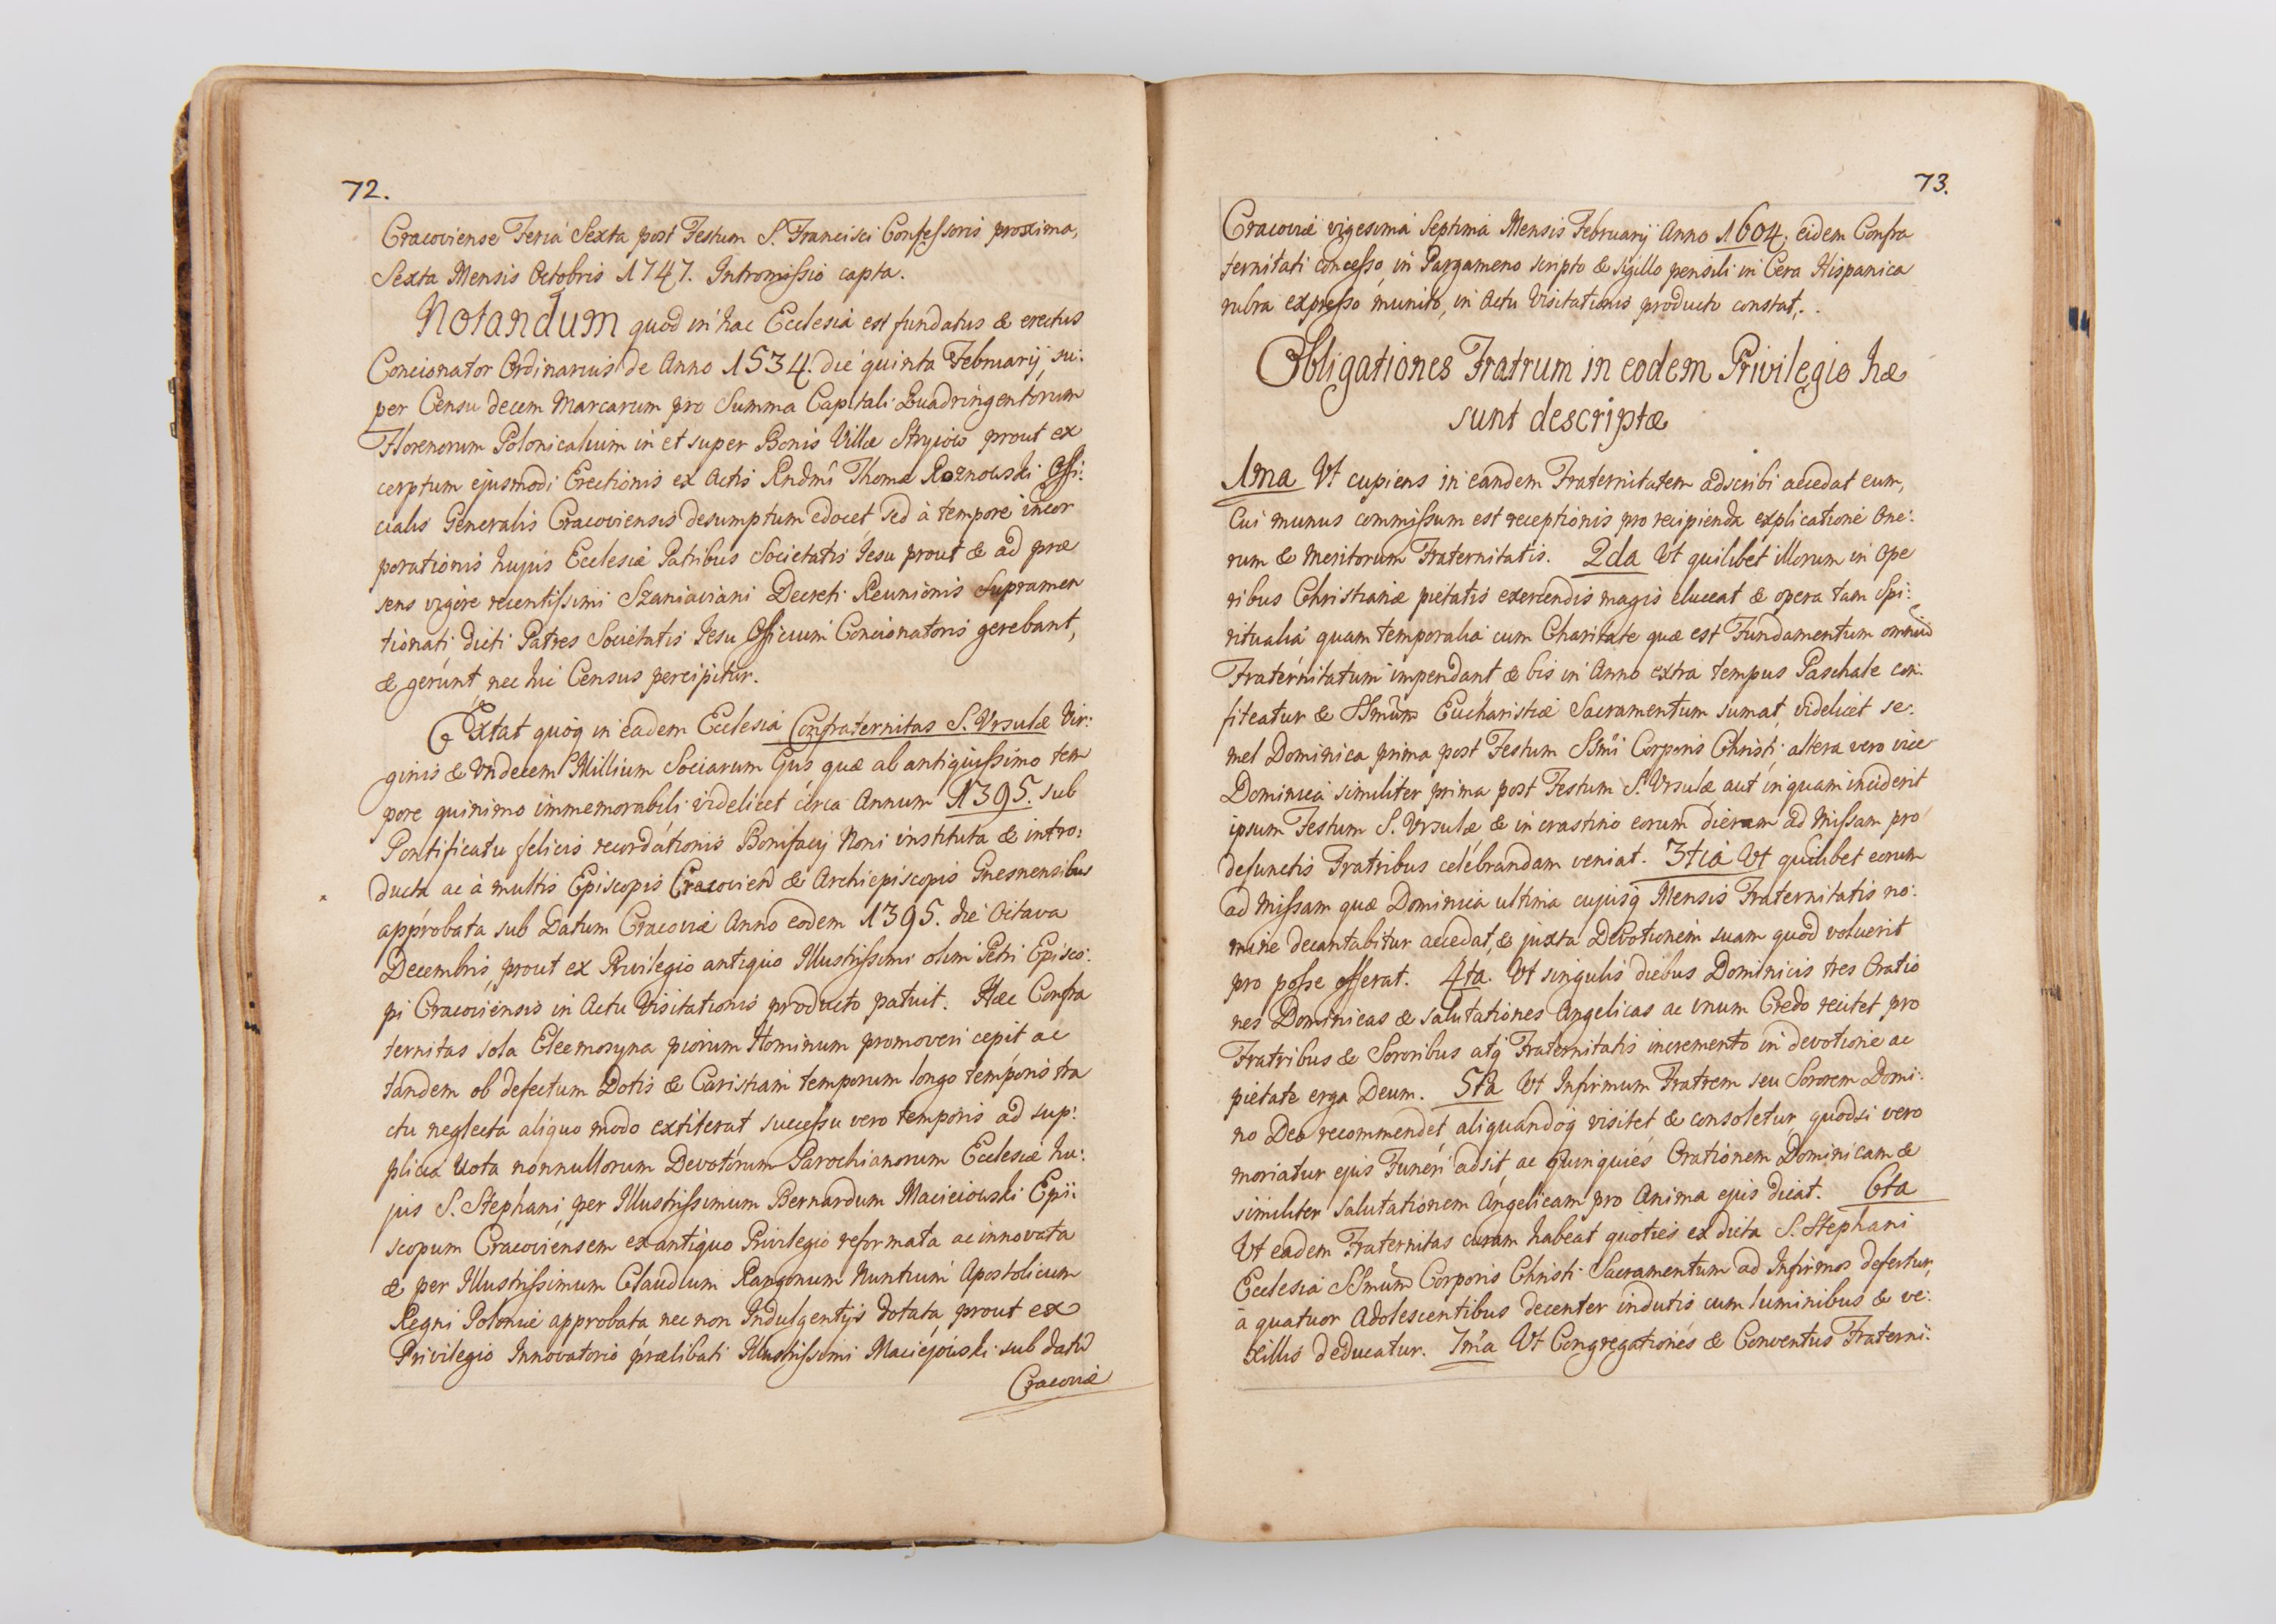 72.
Cracoviense Feria Sexta post Festum S. Francisci Confessoris proxima,
Sexta Mensis Octobris 1747. Intromissio capta.
Notandum quod in hac Ecclesia est fundatus & erectus
Concionator Ordinarius de Anno 1534. die quinta Februarij, su:
per Censu decem Marcarum pro Summa Capitali Quadringentorum
Florenorum Polonicalium in et super Bonis Villæ Stryiow prout ex
cerptum ejusmodi Erectionis ex Actis Rndmi Thomæ Roznowski Offi:
cialis Generalis Cracoviensis desumptum edocet sed à tempore incor
porationis hujus Ecclesiæ Patribus Societatis Jesu prout & ad præ
sens vigore recentissimi Szaniaviani Decreti Reunionis supramen
tionati dicti Patres Societatis Jesu Officium Concionatoris gerebant,
& gerunt, nec hic Census percipitur.
Extat quoq in eadem Ecclesia Confraternitas S. Ursulæ Vir:
ginis & Undecem Millium Sociarum Ejus quæ ab antiquissimo tem
pore quinimo immemorabili videlicet circa Annum 1395. sub
Pontificatu felicis recordationis Bonifacij Noni instituta & intro:
ducta ac à multis Episcopis Cracovien & Archiepiscopis Gnesnensibus
approbata sub Datum Cracoviæ Anno eodem 1395. die Octava
Decembris, prout ex Privilegio antiquo Illustrissimi olim Petri Episco:
pi Cracoviensis in Actu Visitationis producto patuit. Hæc Confra
ternitas sola Eleemosyna piorum Hominum promoveri cepit ac
tandem ob defectum Dotis & Caristiam temporum longo temporis tra
ctu neglecta aliquo modo extiterat successu vero temporis ad sup:
plicia Vota nonnullorum Devotorum Parochianorum Ecclesiæ hu:
jus S. Stephani, per Illustrissimum Bernardum Macieiowski Epi:
scopum Cracoviensem ex antiquo Privilegio reformata ac innovata
& per Illustrissimum Claudium Rangonum Nuntium Apostolicum
Regni Poloniæ approbata nec non Indulgentijs dotata prout ex
Privilegio Innovatorio prælibati Illustrissimi Maciejowski sub datu
Cracoviæ
73.
Cracoviæ vigesima Septima Mensis Februarij Anno 1604. eidem Confra
ternitati concesso, in Pargameno scripto & sigillo pensili in Cera Hispanica
rubra expresso munito, in Actu Visitationis producto constat.
Obligationes Fratrum in eodem Privilegio hæ
sunt descriptæ
1ma Ut cupiens in eandem Fraternitatem adscribi accedat eum,
Cui munus commissum est receptionis pro recipienda explicatione One:
rum & Meritorum Fraternitatis. 2da Ut quilibet illorum in Ope
ribus Christianæ pietatis exercendis magis eluceat & opera tam Spi:
ritualia quam temporalia cum Charitate quæ est Fundamentum omniũ
Fraternitatum impendant & bis in Anno extra tempus Paschale con:
fiteatur & SSmum Eucharistiæ Sacramentum sumat, videlicet se:
mel Dominica prima post Festum SSmi Corporis Christi, altera vero vice
Dominica similiter prima post Festum S. Ursulæ, aut in quam inciderit
ipsum Festum S. Ursulæ & in crastino eorum dierum ad Missam pro
defunctis Fratribus celebrandam veniat. 3tia Ut quilibet eorum
ad Missam quæ Dominica ultima cujusq Mensis Fraternitatis no:
mine decantabitur accedat, & juxta Devotionem suam quod voluerit
pro posse offerat. 4ta. Ut singulis diebus Dominicis tres Oratio
nes Dominicas & salutationes Angelicas ac unum Credo recitet pro
Fratribus & Sororibus atq Fraternitatis incremento in devotione ac
pietate erga Deum. 5ta Ut Infirmum Fratrem seu Sororem Domi:
no Deo recommendet, aliquandoq visitet & consoletur, quodsi vero
moriatur ejus Funeri adsit, ac quinquies Orationem Dominicam &
similiter Salutationem Angelicam pro Anima ejus dicat. 6ta
Ut eadem Fraternitas curam habeat quoties ex dicta S. Stephani
Ecclesia SSmum Corporis Christi Sacramentum ad Infirmos defertur,
à quatuor Adolescentibus decenter indutis cum luminibus & ve:
xillis deducatur. 7ma Ut Congregationes & Conventus Fraterni: